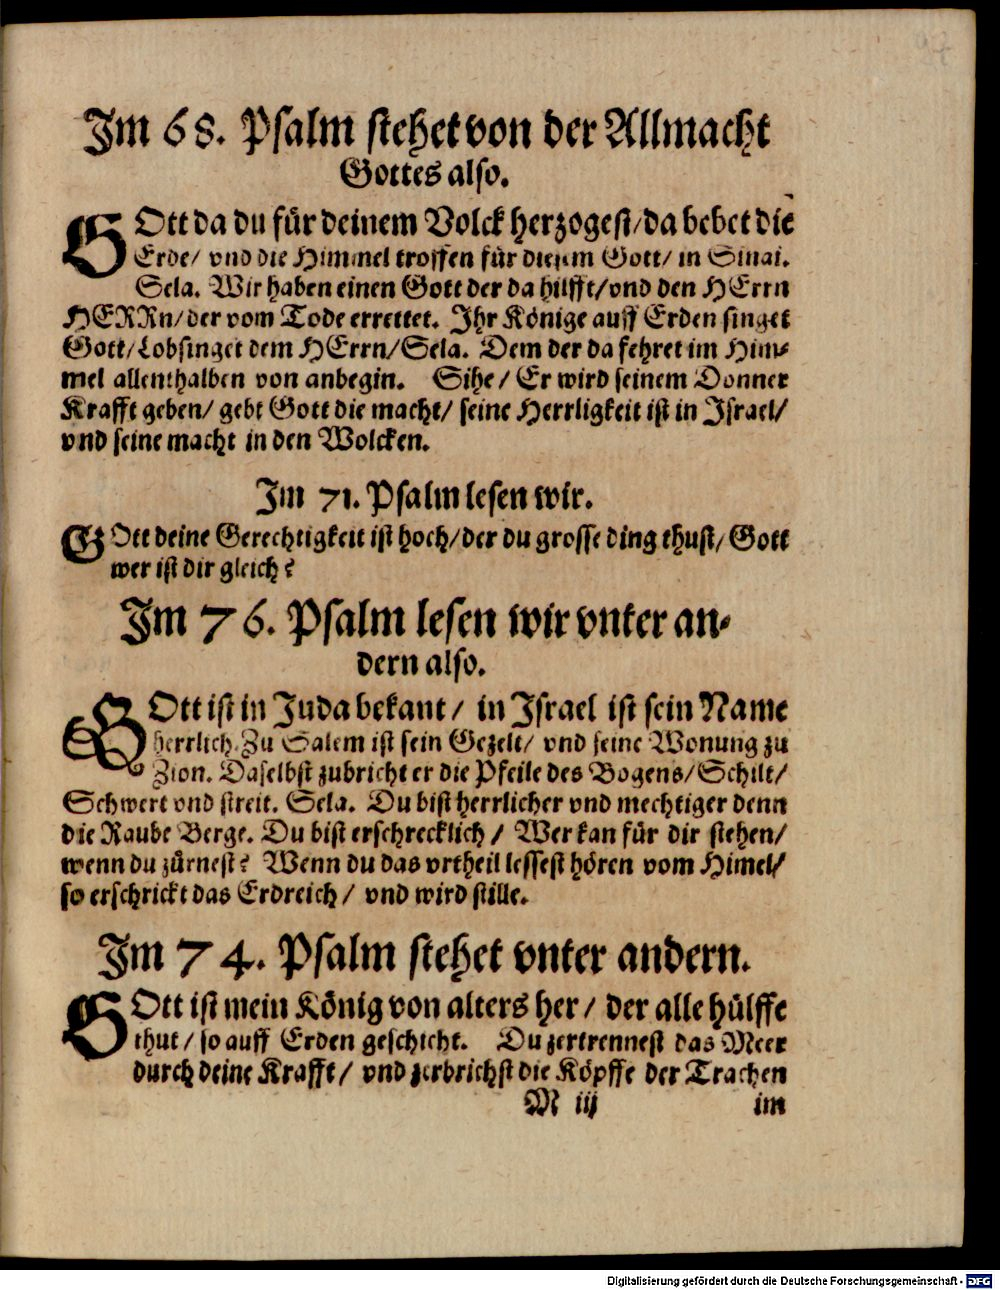 Im 68. Psalm stehet von der Allmacht
Gottes also.
GOtt da du für deinem Volck herzogest/ da bebet die
Erde/ vnd die Himmel troffen für diesem Gott/ in Sinai.
Sela. Wir haben einen Gott der da hilfft/ vnd den HErrn
HERRn/ der vom Tode errettet. Ihr Könige auff Erden singet
Gott/ Lobsinget dem HErrn/ Sela. Dem der da fehret im Him-
mel allenthalben von anbegin. Sihe/ Er wird seinem Donner
Krafft geben/ gebt Gott die macht/ seine Herrligkeit ist in Israel/
vnd seine macht in den Wolcken.
Im 71. Psalm lesen wir.
GOtt deine Gerechtigkeit ist hoch/ der du grosse ding thust/ Gott
wer ist dir gleich?
Im 76. Psalm lesen wir vnter an-
dern also.
GOtt ist in Juda bekant/ in Israel ist sein Name
herrlich. Zu Salem ist sein Gezelt/ vnd seine Wonung zu
Zion. Daselbst zubricht er die Pfeile des Bogens/ Schilt/
Schwert vnd streit. Sela. Du bist herrlicher vnd mechtiger denn
die Raube Berge. Du bist erschrecklich/ Wer kan für dir stehen/
wenn du zürnest? Wenn du das vrtheil lessest hören vom Himel/
so erschrickt das Erdreich/ vnd wird stille.
Im 74. Psalm stehet vnter andern.
GOtt ist mein König von alters her/ der alle hülffe
thut/ so auff Erden geschicht. Du zertrennest das Meer
durch deine Krafft/ vnd zerbrichst die Köpffe der Trachen
M iij im
Digitalisierung gefördert durch die Deutsche Forschungsgemeinschaft - DFG